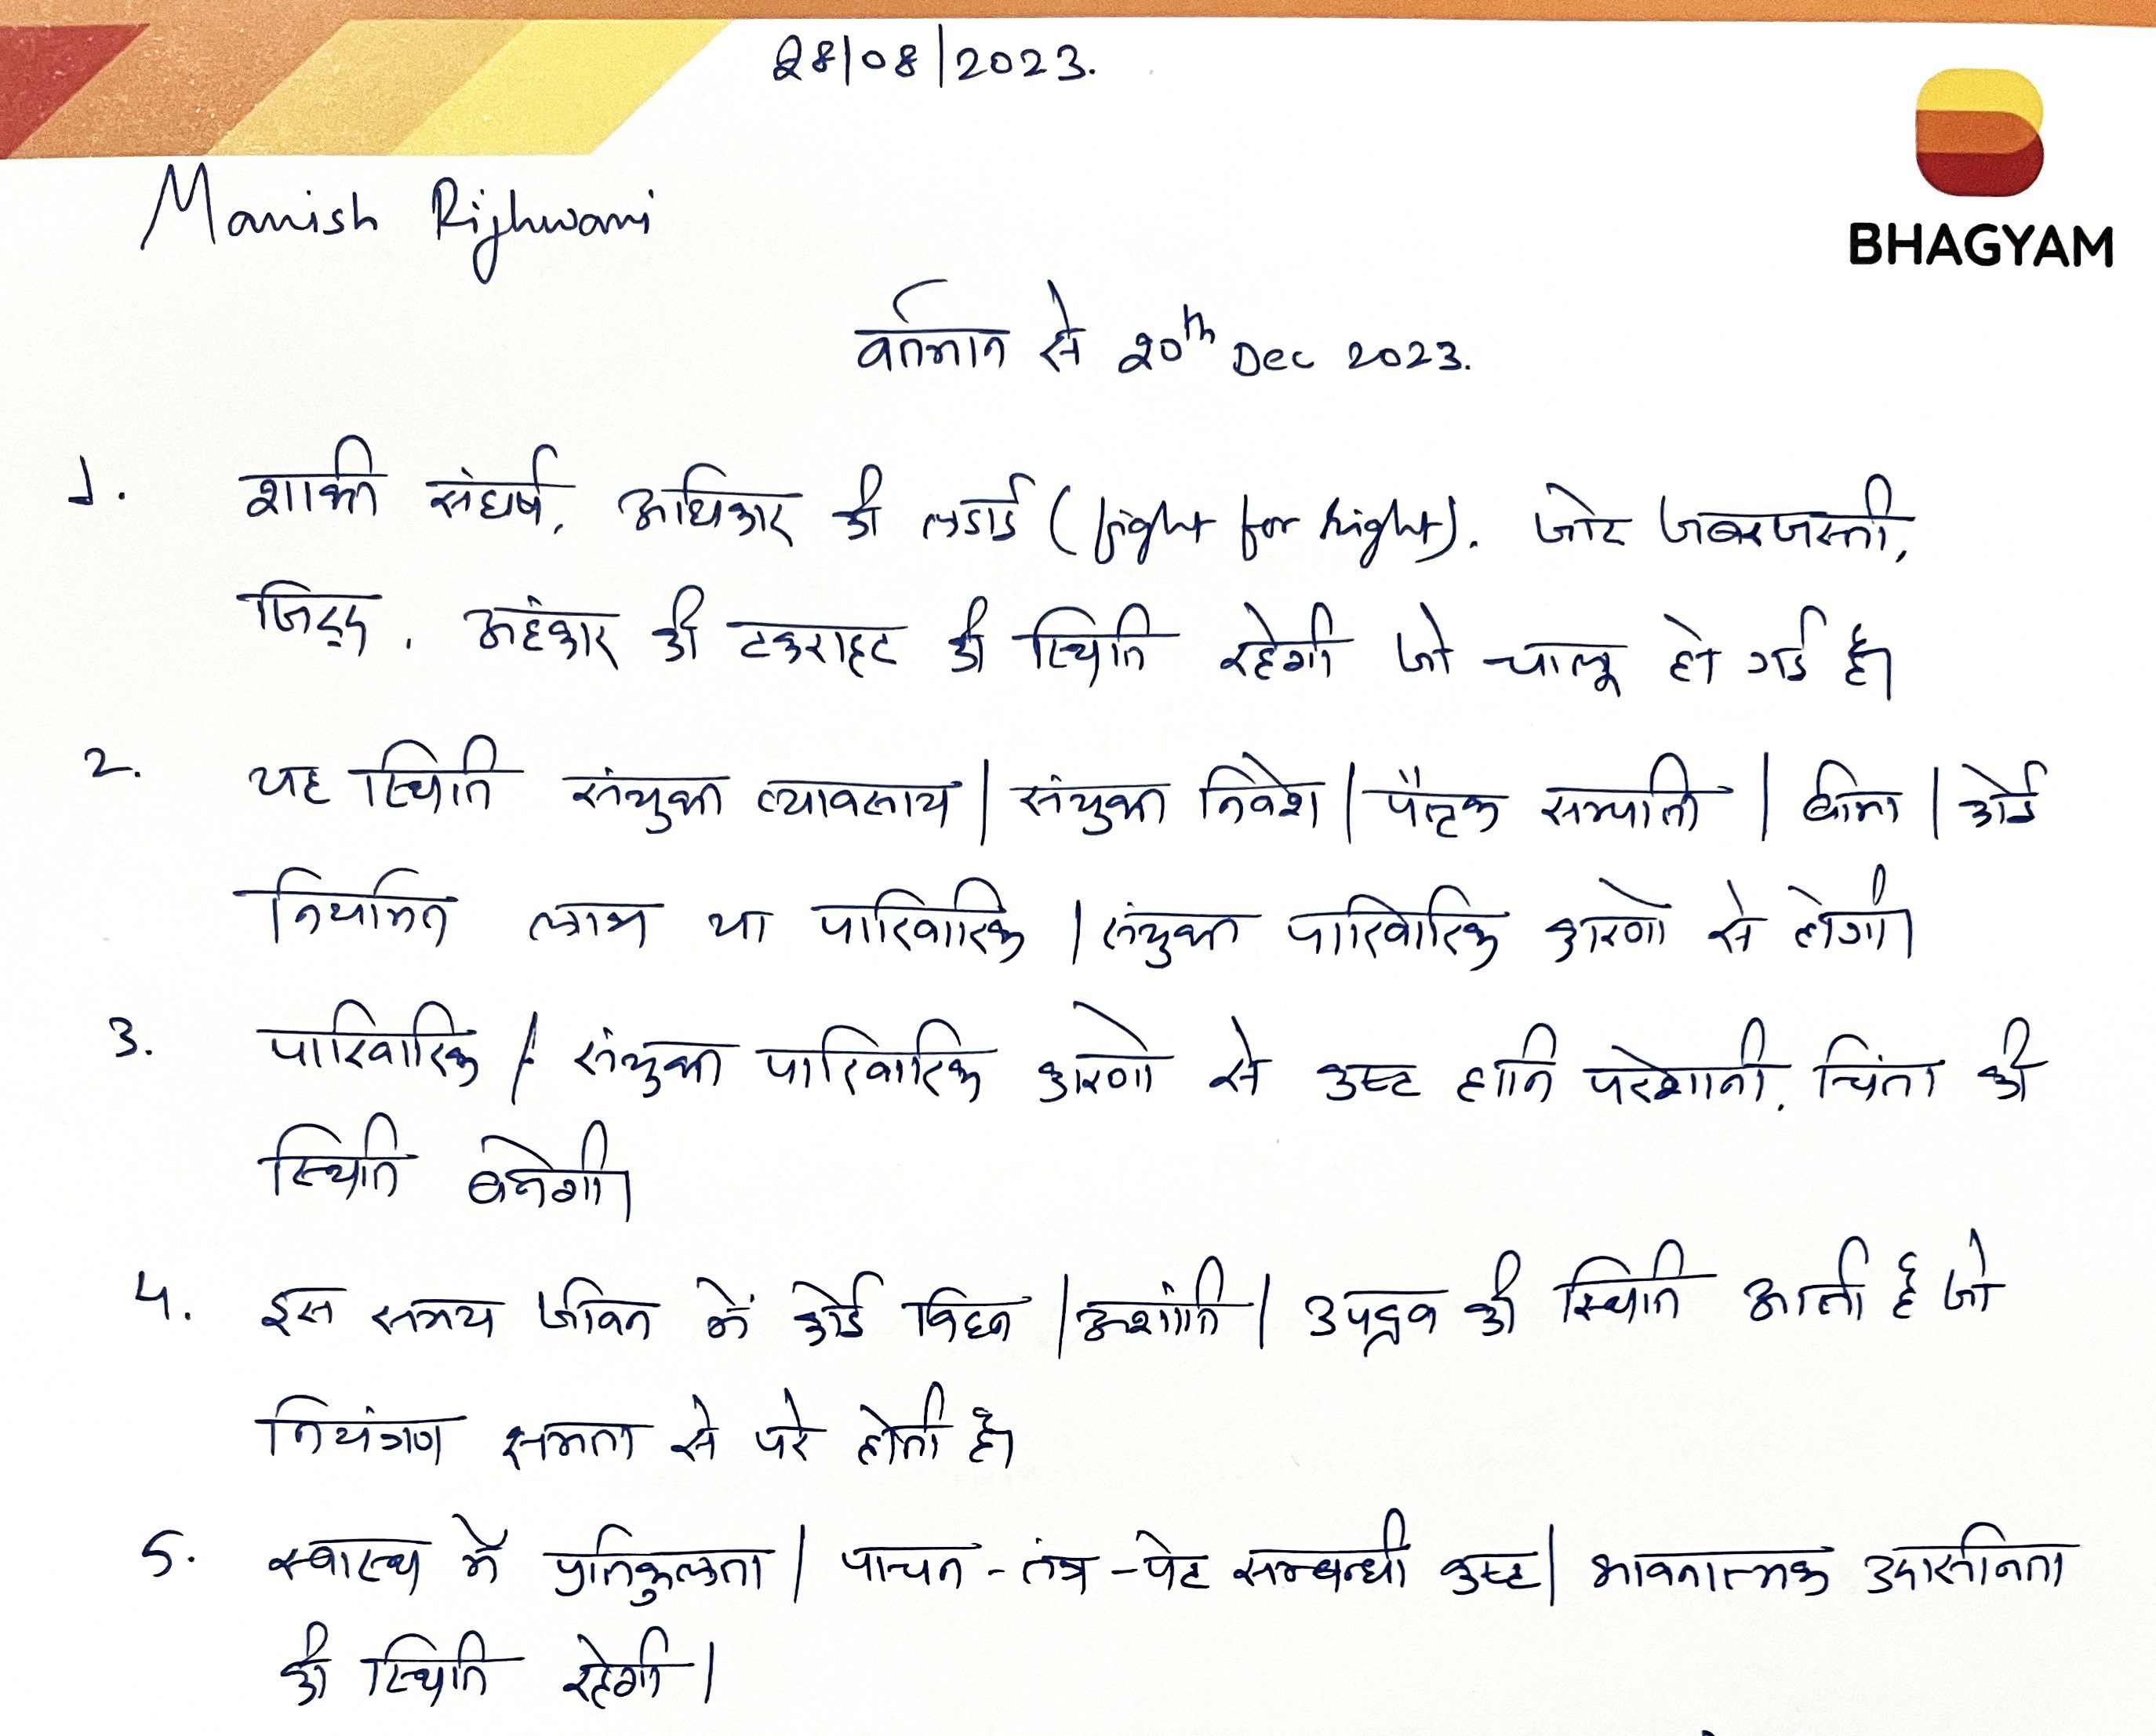 28/08/2023.
BHAGYAM
Manish Rijhwani
वर्तमान से 20th Dec 2023.
1. शक्ति संघर्ष, अधिकार की लडाई (fight for right). जोर जबरजस्ती,
जिद्द, अहंकार की टकराहट की स्थिति रहेगी जो चालू हो गई है।
2. यह स्थिति संयुक्त व्यावसाय | संयुक्त निवेश | पैतृक सम्पत्ति | बीमा | कोई
नियमित लाभ या पारिवारिक | संयुक्त पारिवारिक कारणो से होगी।
3. पारिवारिक / संयुक्त पारिवारिक कारणो से कष्ट हानि परेशानी, चिंता की
स्थिति बनेगी।
4. इस समय जीवन में कोई विघ्न | अशांति | उपद्रव की स्थिति आती है जो
नियंत्रण क्षमता से परे होती है।
5. स्वास्थ्य में प्रतिकुलता | पाचन - तंत्र - पेट सम्बन्धी कष्ट | भावनात्मक उदासीनता
की स्थिति रहेगी।